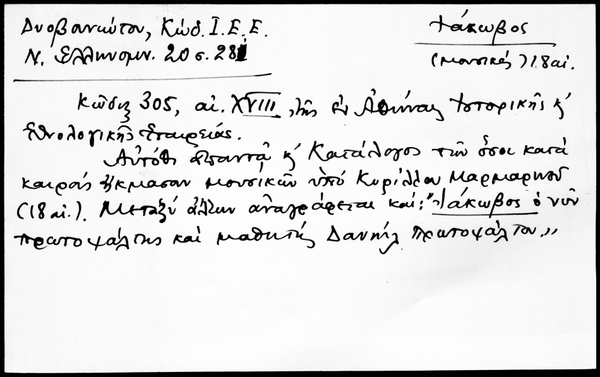 Δυοβουνιώτου, Κώδ. Ι. Ε. Ε.
Ν. Ελληνομν. 20 σ. 281
Ἰάκωβος
(μουσικός) 18 αἰ.
Κῶδιξ 305, αἰ. XVIII, τῆς ἐν Ἀθήναις Ἱστορικῆς κ'
Ἐθνολογικῆς Ἑταιρείας.
Αὐτόθι ἀπαντᾷ κ' Κατάλογος τῶν ὅσοι κατὰ
καιροὺς ἤκμασαν μουσικῶν ὑπὸ Κυρίλλου Μαρμαρηνοῦ
(18 αἰ.). Μεταξὺ ἄλλων ἀναγράφεται καί: "Ἰάκωβος ὁ νῦν
πρωτοψάλτης καὶ μαθητής Δανιήλ πρωτοψάλτου,,